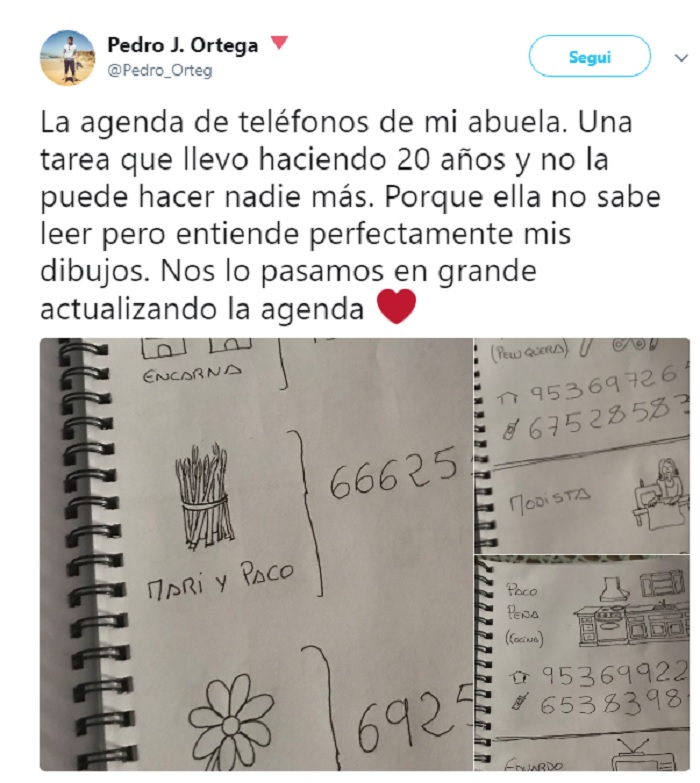 Pedro J. Ortega
@Pedro_Orteg
Segui
La agenda de teléfonos de mi abuela. Una
tarea que llevo haciendo 20 años y no la
puede hacer nadie más. Porque ella no sabe
leer pero entiende perfectamente mis
dibujos. Nos lo pasamos en grande
actualizando la agenda
ENCARNA
66625
MARi y PACO
6925
(PELUQUERA)
95369726
67528583
MODISTA
PACO
PEÑA
(COCINAS)
95369922
6538398
EDUARDO